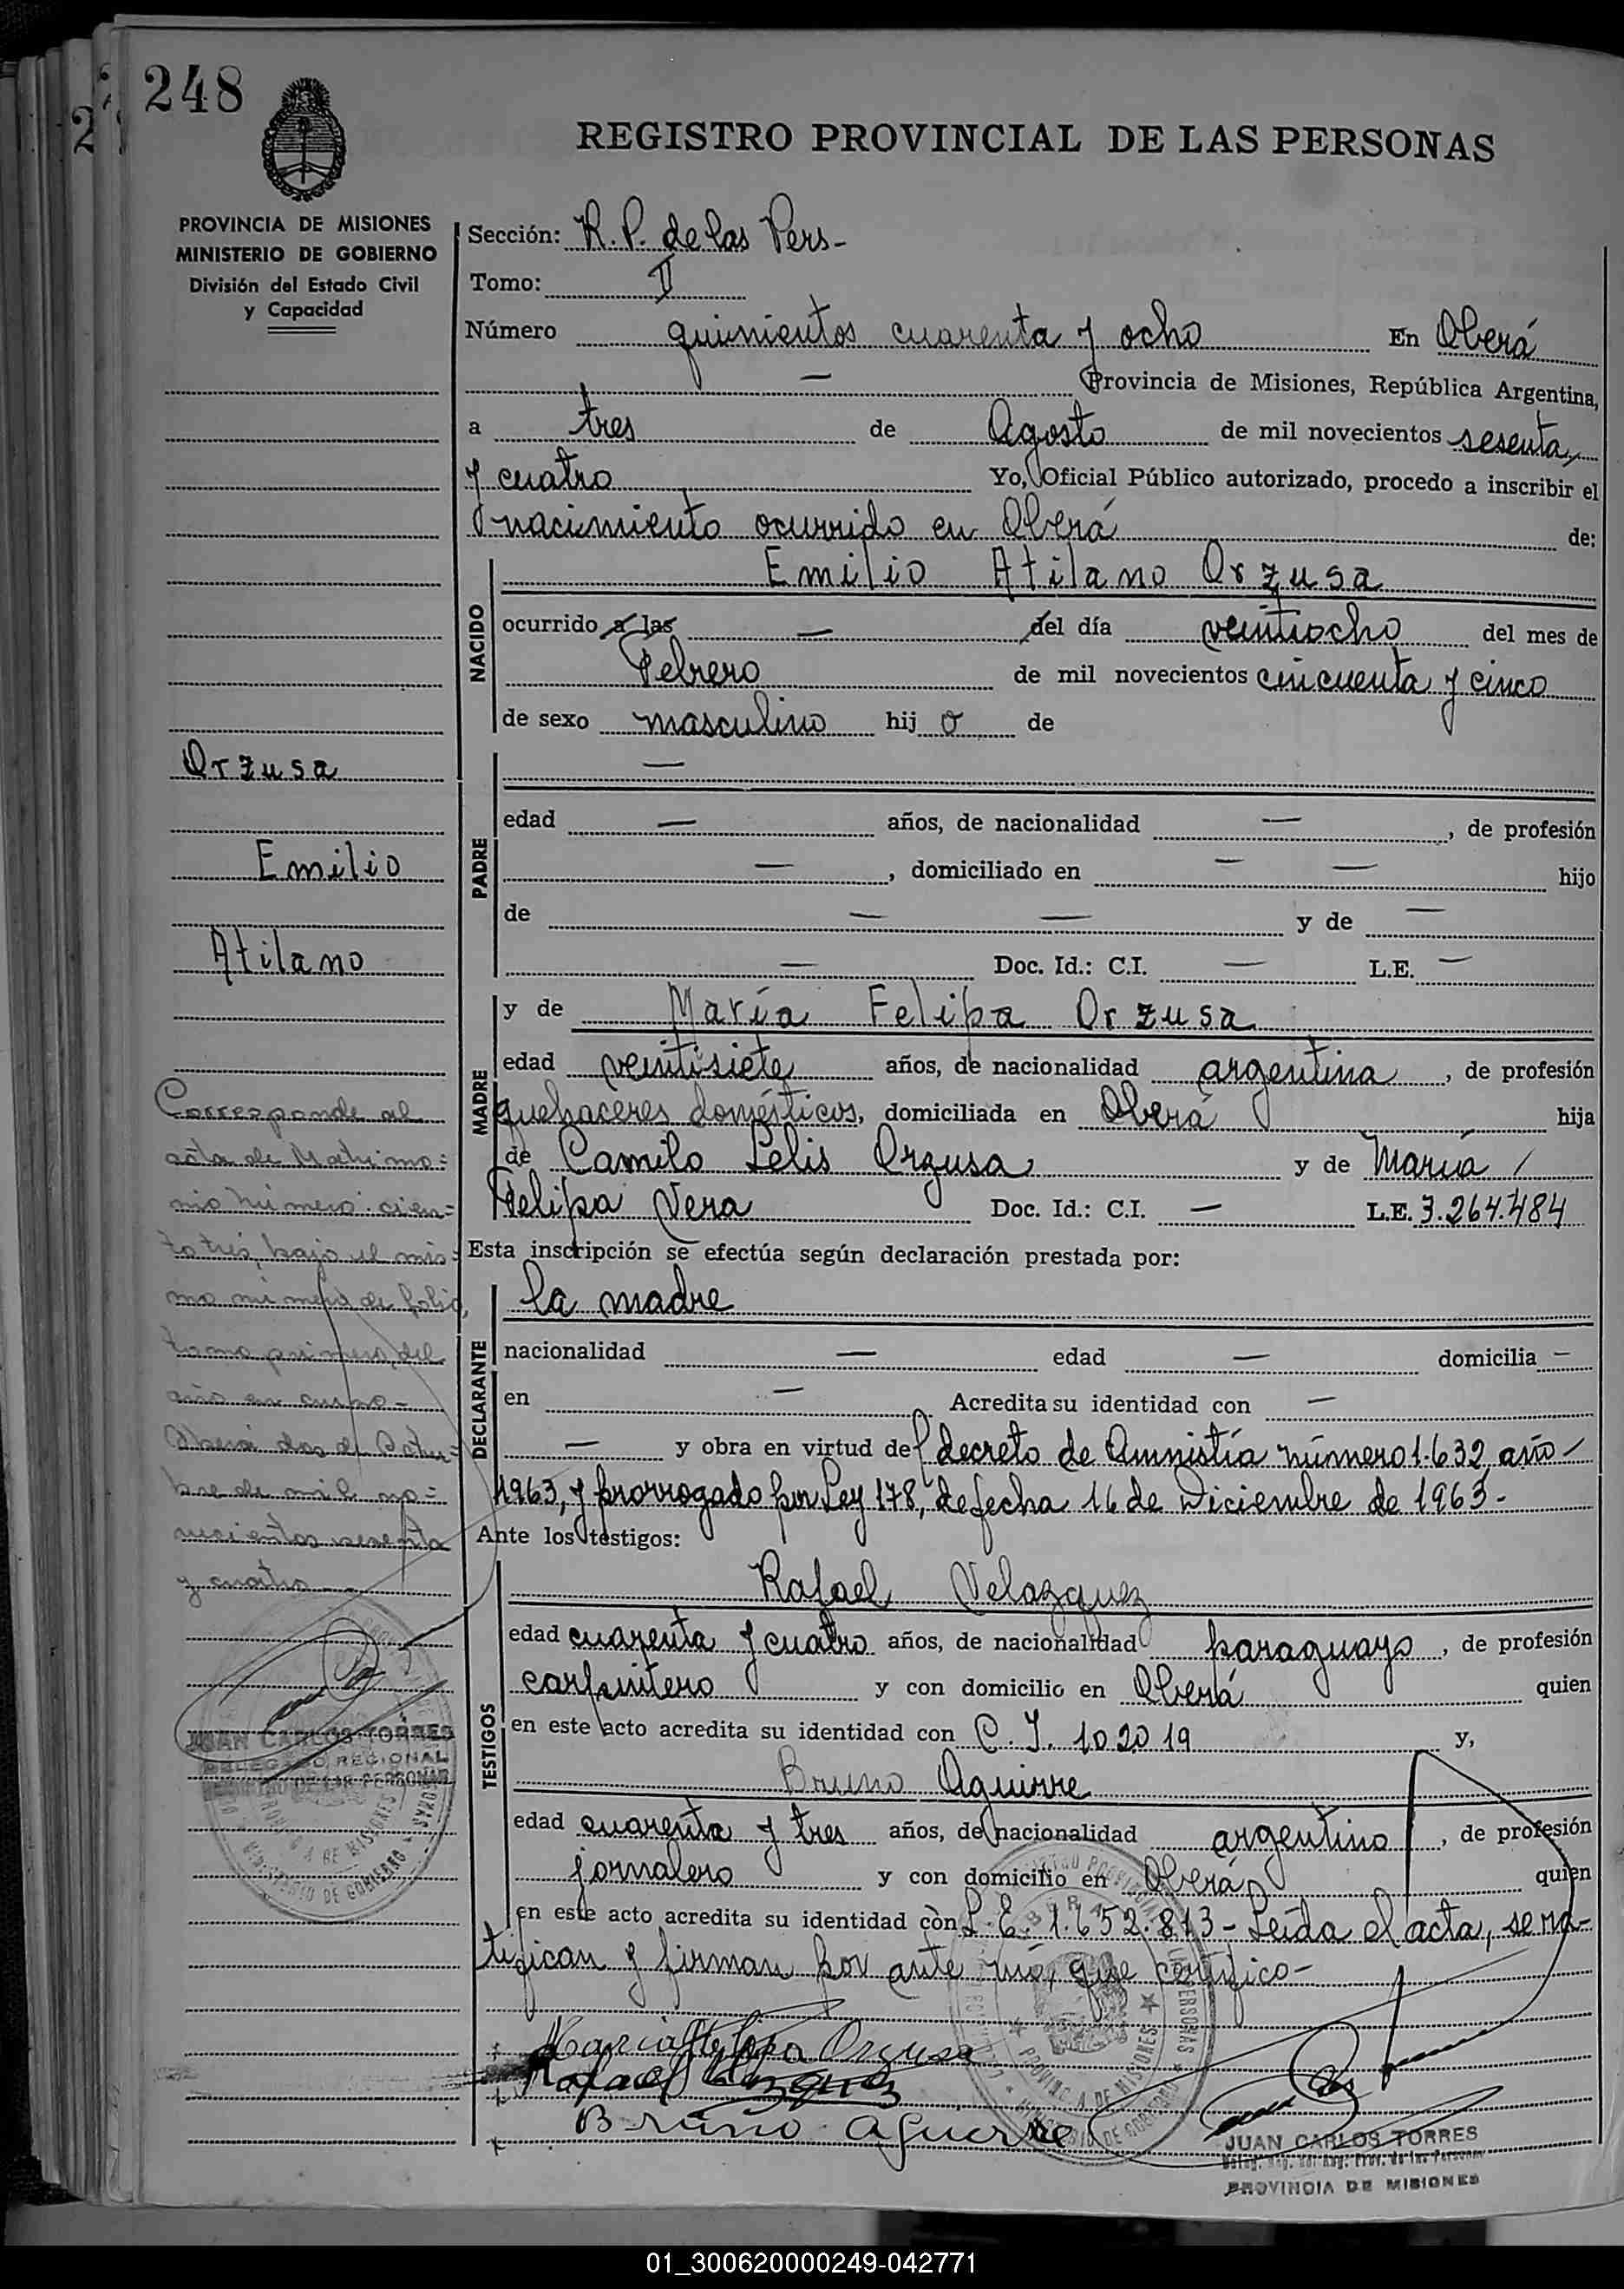 248
REGISTRO PROVINCIAL DE LAS PERSONAS
PROVINCIA DE MISIONES
MINISTERIO DE GOBIERNO
División del Estado Civil
y Capacidad
Sección: R. P. de las Pers-
Tomo: II
Número quinientos cuarenta y ocho En Oberá
— Provincia de Misiones, República Argentina,
a tres de Agosto de mil novecientos sesenta
y cuatro Yo, Oficial Público autorizado, procedo a inscribir el
nacimiento ocurrido en Oberá de:
NACIDO
Emilio Atilano Orzusa
ocurrido a las — del día veintiocho del mes de
Febrero de mil novecientos cincuenta y cinco
de sexo masculino hijo de
PADRE
—
edad — años, de nacionalidad —, de profesión
—, domiciliado en — — hijo
de — — y de —
— Doc. Id.: C.I. — L.E. —
MADRE
y de María Felipa Orzusa
edad veintisiete años, de nacionalidad argentina, de profesión
quehaceres domésticos, domiciliada en Oberá hija
de Camilo Lelis Orzusa y de María /
Felipa Vera Doc. Id.: C.I. — L.E. 3.264.484
Esta inscripción se efectúa según declaración prestada por:
DECLARANTE
la madre
nacionalidad — edad — domicilia —
en — Acredita su identidad con —
— y obra en virtud del decreto de Amnistía número 1.632, año —
1963, y prorrogado por Ley 178, de fecha 16 de Diciembre de 1963-
Ante los testigos:
TESTIGOS
Rafael Velazquez
edad cuarenta y cuatro años, de nacionalidad paraguayo, de profesión
carpintero y con domicilio en Oberá quien
en este acto acredita su identidad con C. I. 102019 y,
Bruno Aguirre
edad cuarenta y tres años, de nacionalidad argentino, de profesión
jornalero y con domicilio en Oberá quien
en este acto acredita su identidad con L. E. 1.652.813- Leida el acta, se ra-
tifican y firman por ante mí, que certifico-
Maria Felipa Orzusa
Rafael Velazquez
Bruno aguirre
JUAN CARLOS TORRES
PROVINCIA DE MISIONES
Orzusa
Emilio
Atilano
Corresponde al
acta de Matrimo=
nio número cien=
to tres, bajo el mis=
mo número de folio,
tomo primero, del
año en curso-
Oberá dos de Octu=
bre de mil no=
vecientos sesenta
y cuatro
JUAN CARLOS TORRES
DELEGADO REGIONAL
DE LAS PERSONAS
PROVINCIA DE MISIONES
MINISTERIO DE GOBIERNO
PROVINCIA DE MISIONES
01_300620000249-042771